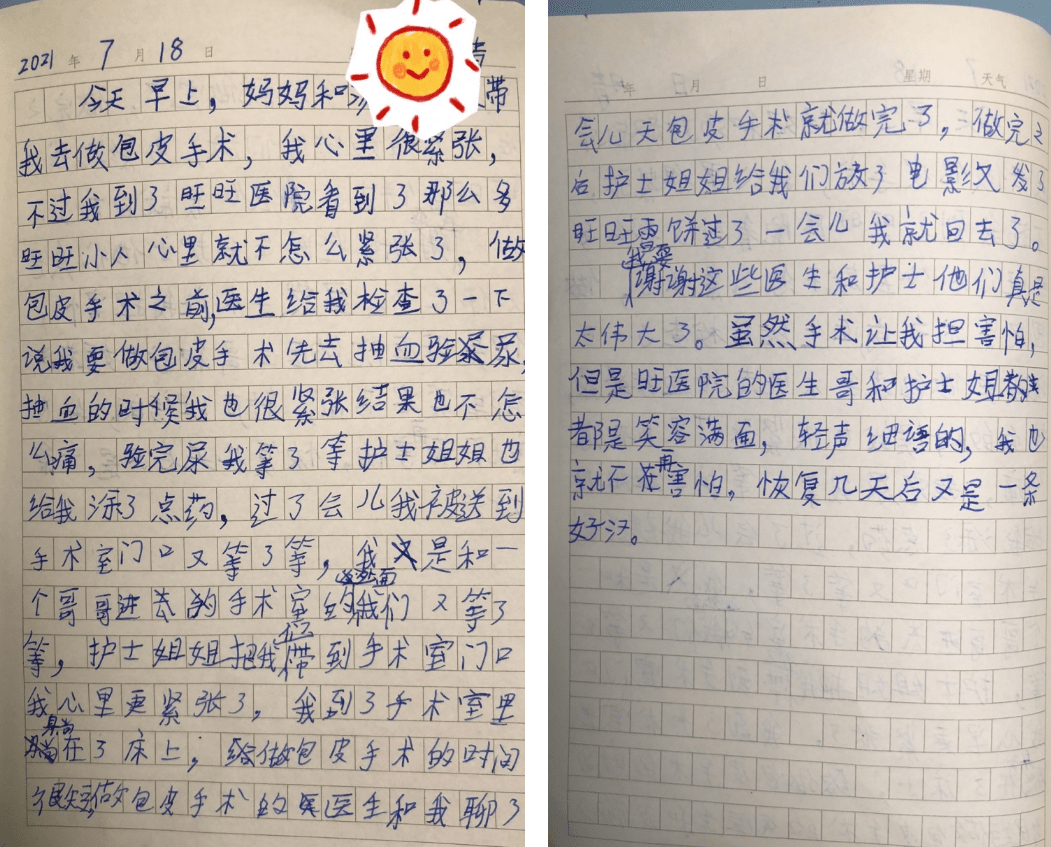 2021年7月18日
今天早上，妈妈和 带
我去做包皮手术，我心里很紧张，
不过我到了旺旺医院看到了那么多
旺旺小人心里就不怎么紧张了，做
包皮手术之前，医生给我检查了一下
说我要做包皮手术先去抽血验尿，
抽血的时候我也很紧张结果也不怎
么痛，验完尿我等了等护士姐姐也
给我涂了点药，过了会儿我被送到
手术室门口又等了等，我是和一
个哥哥进去的手术室 我们又等了
等，护士姐姐把我们带到手术室门口
我心里更紧张了，我到了手术室里
躺在了床上，给做包皮手术的时间
很短，做包皮手术的医生和我聊了
年 月 日 星期 天气
会儿天包皮手术就做完了，做完之
后护士姐姐给我们放了电影又发了
旺旺雪饼过了一会儿我就回去了。
我要谢谢这些医生和护士他们真是
太伟大了。虽然手术让我担害怕，
但是旺医院的医生哥和护士姐
都是笑容满面，轻声细语的，我也
就不再害怕，恢复几天后又是一条
好汉。